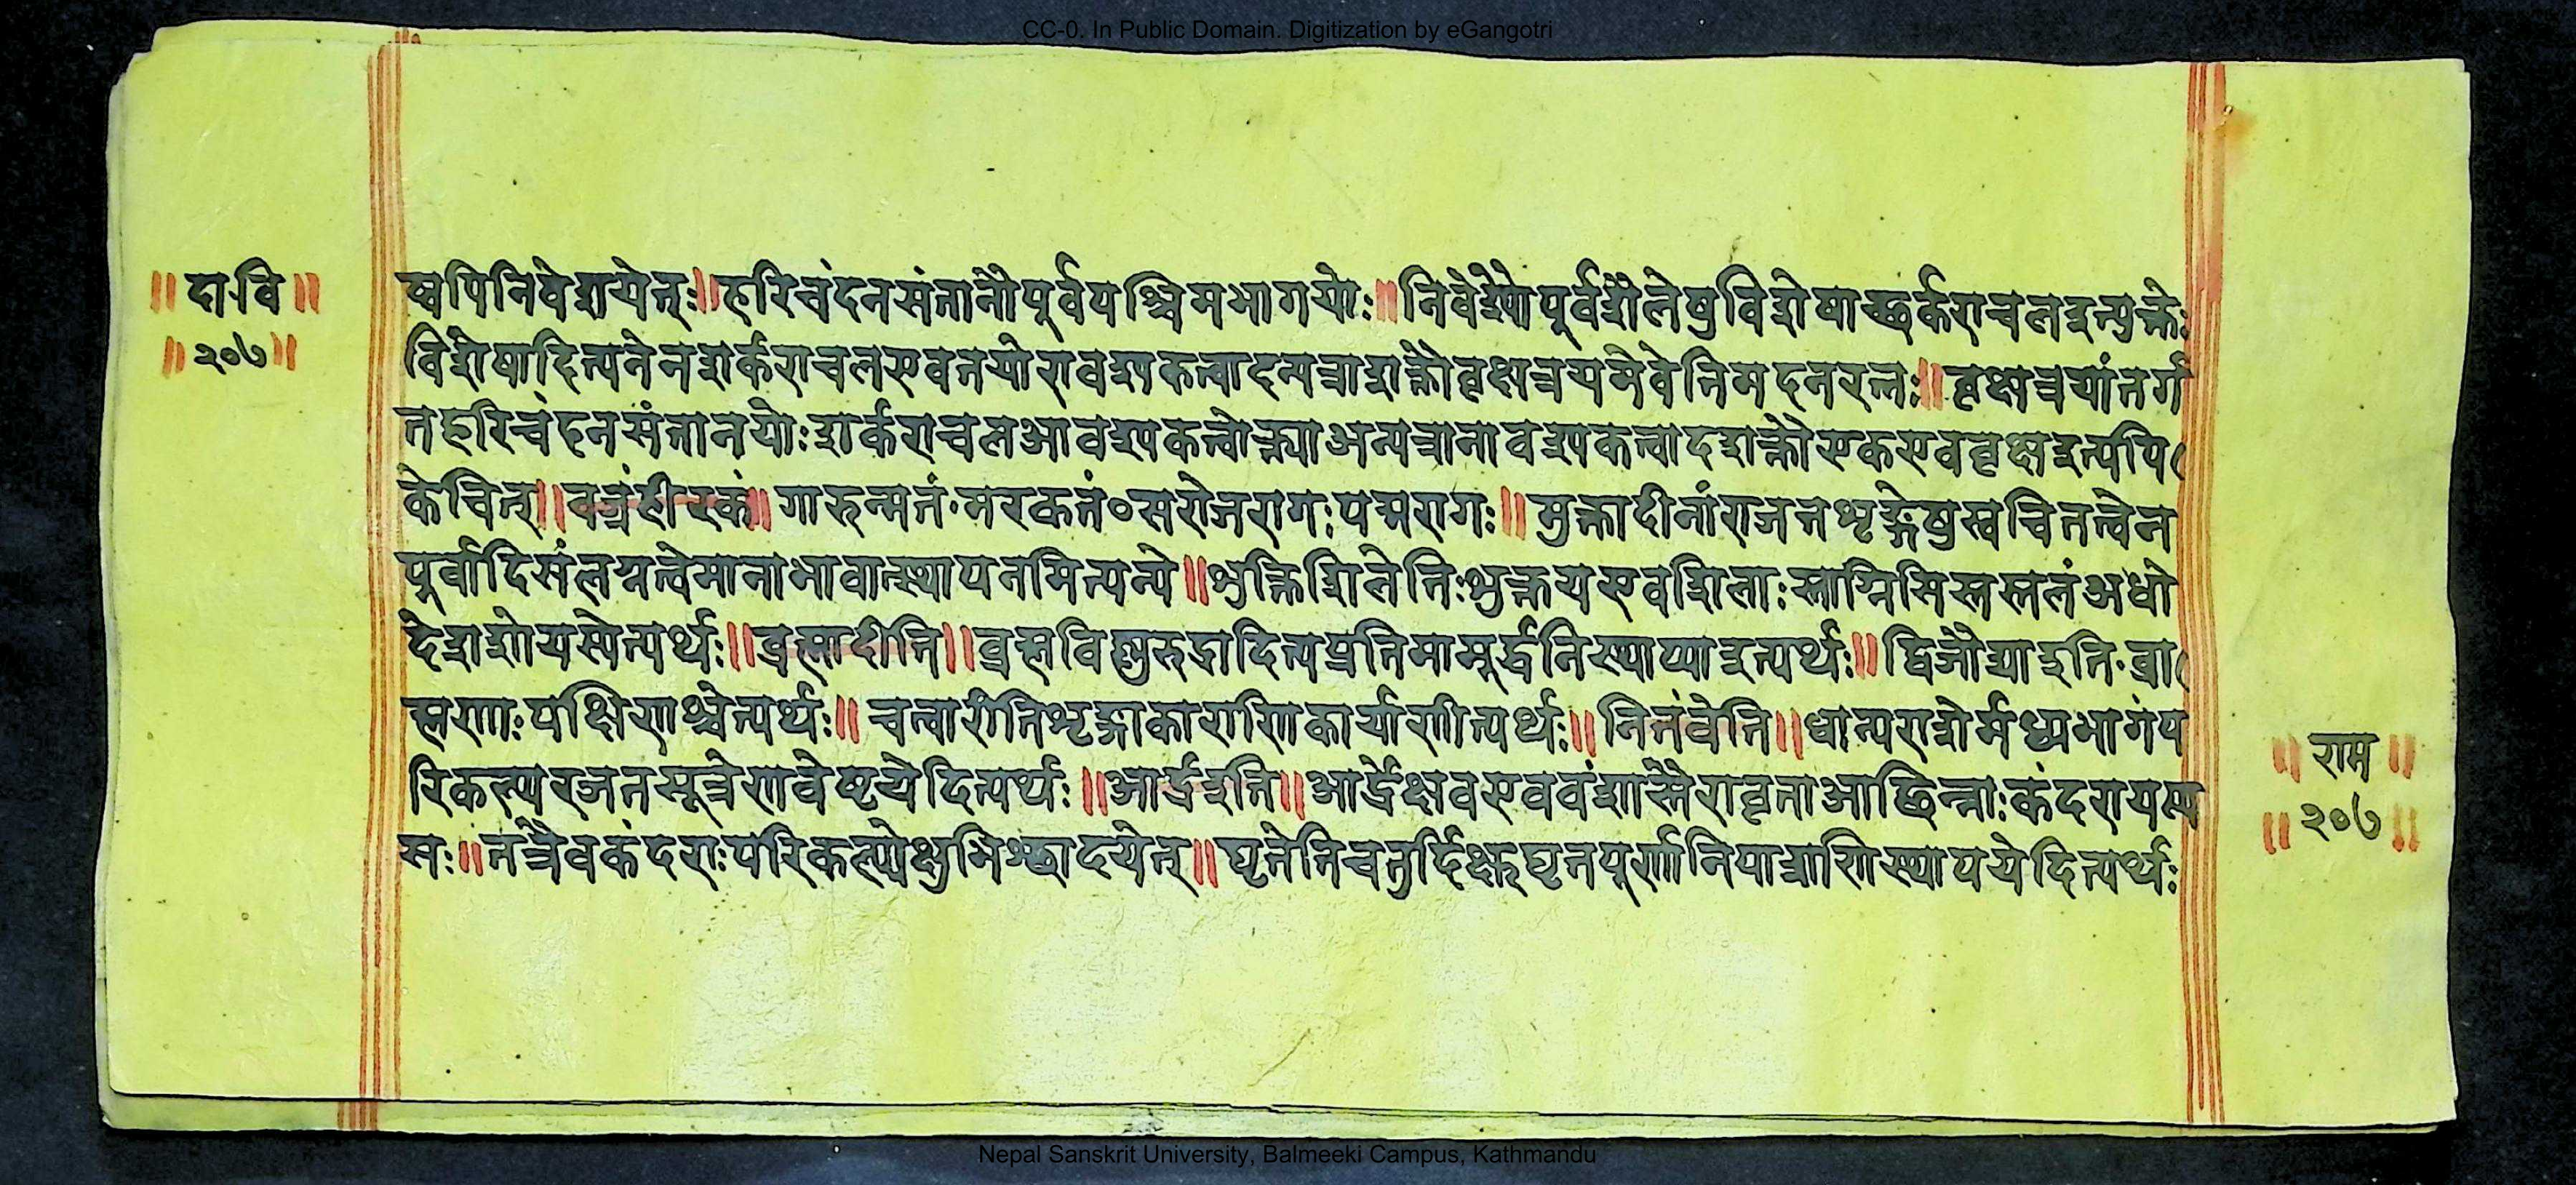 CC-0. In Public Domain. Digitization by eGangotri
॥ दा॰वि ॥
॥ २०७ ॥
ष्वपिनिवेशयेत्ः॥हरिचंदनसंतानौपूर्वपश्चिमभागयोः॥निवेश्यौपूर्वशैलेषुविशेषाच्छर्कराचलइत्युक्तेः
विशेषादित्यनेनशर्कराचलएवतयोरावश्यकत्वादन्यत्राशक्तौवृक्षत्रयमेवेतिमदनरत्नः॥वृक्षत्रयांतर्ग
तहरिचंदनसंतानयोःशर्कराचलआवश्यकत्वोक्त्याअन्यत्रानावश्यकत्वादशक्तौएकएववृक्षइत्यपि
केचित्॥वज्रंहीरकं॥गारुत्मतं॰मरकतं०सरोजरागःपद्मरागः॥मुक्तादीनांराजतशृङ्गेषुखचितत्वेन
पूर्वादिसंलग्नत्वेमानाभावात्स्थापनमित्यन्ये॥शुक्तिशिलेतिःशुक्तयएवशिलाःस्ताग्निसिस्तस्तलंअधो
देशशोयस्येत्यर्थः॥ब्रह्मादीनि॥ब्रह्मविष्णुरुद्रादित्यप्रतिमामूर्द्धनिस्थाप्याइत्यर्थः॥द्विजौद्याइति॰ब्रा
ह्मणाःपक्षिणश्चेत्यर्थः॥चत्वारीतिशृङ्गाकाराणिकार्याणीत्यर्थः॥नितंबेति॥धान्यराशेर्मध्यभागंप
रिकल्प्यरजतसूत्रेणवेष्टयेदित्यर्थः॥आर्द्रइति॥आर्द्रेक्षवएववंशास्तैरावृताआछिन्नाःकंदरायस्य
सः॥तत्रैवकंदराःपरिकल्प्येक्षुभिश्छादयेत्॥घृतेतिचतुर्दिक्षुघृतपूर्णानिपात्राणिस्थापयेदित्यर्थः
॥ राम ॥
॥ २०७ ॥
Nepal Sanskrit University, Balmeeki Campus, Kathmandu